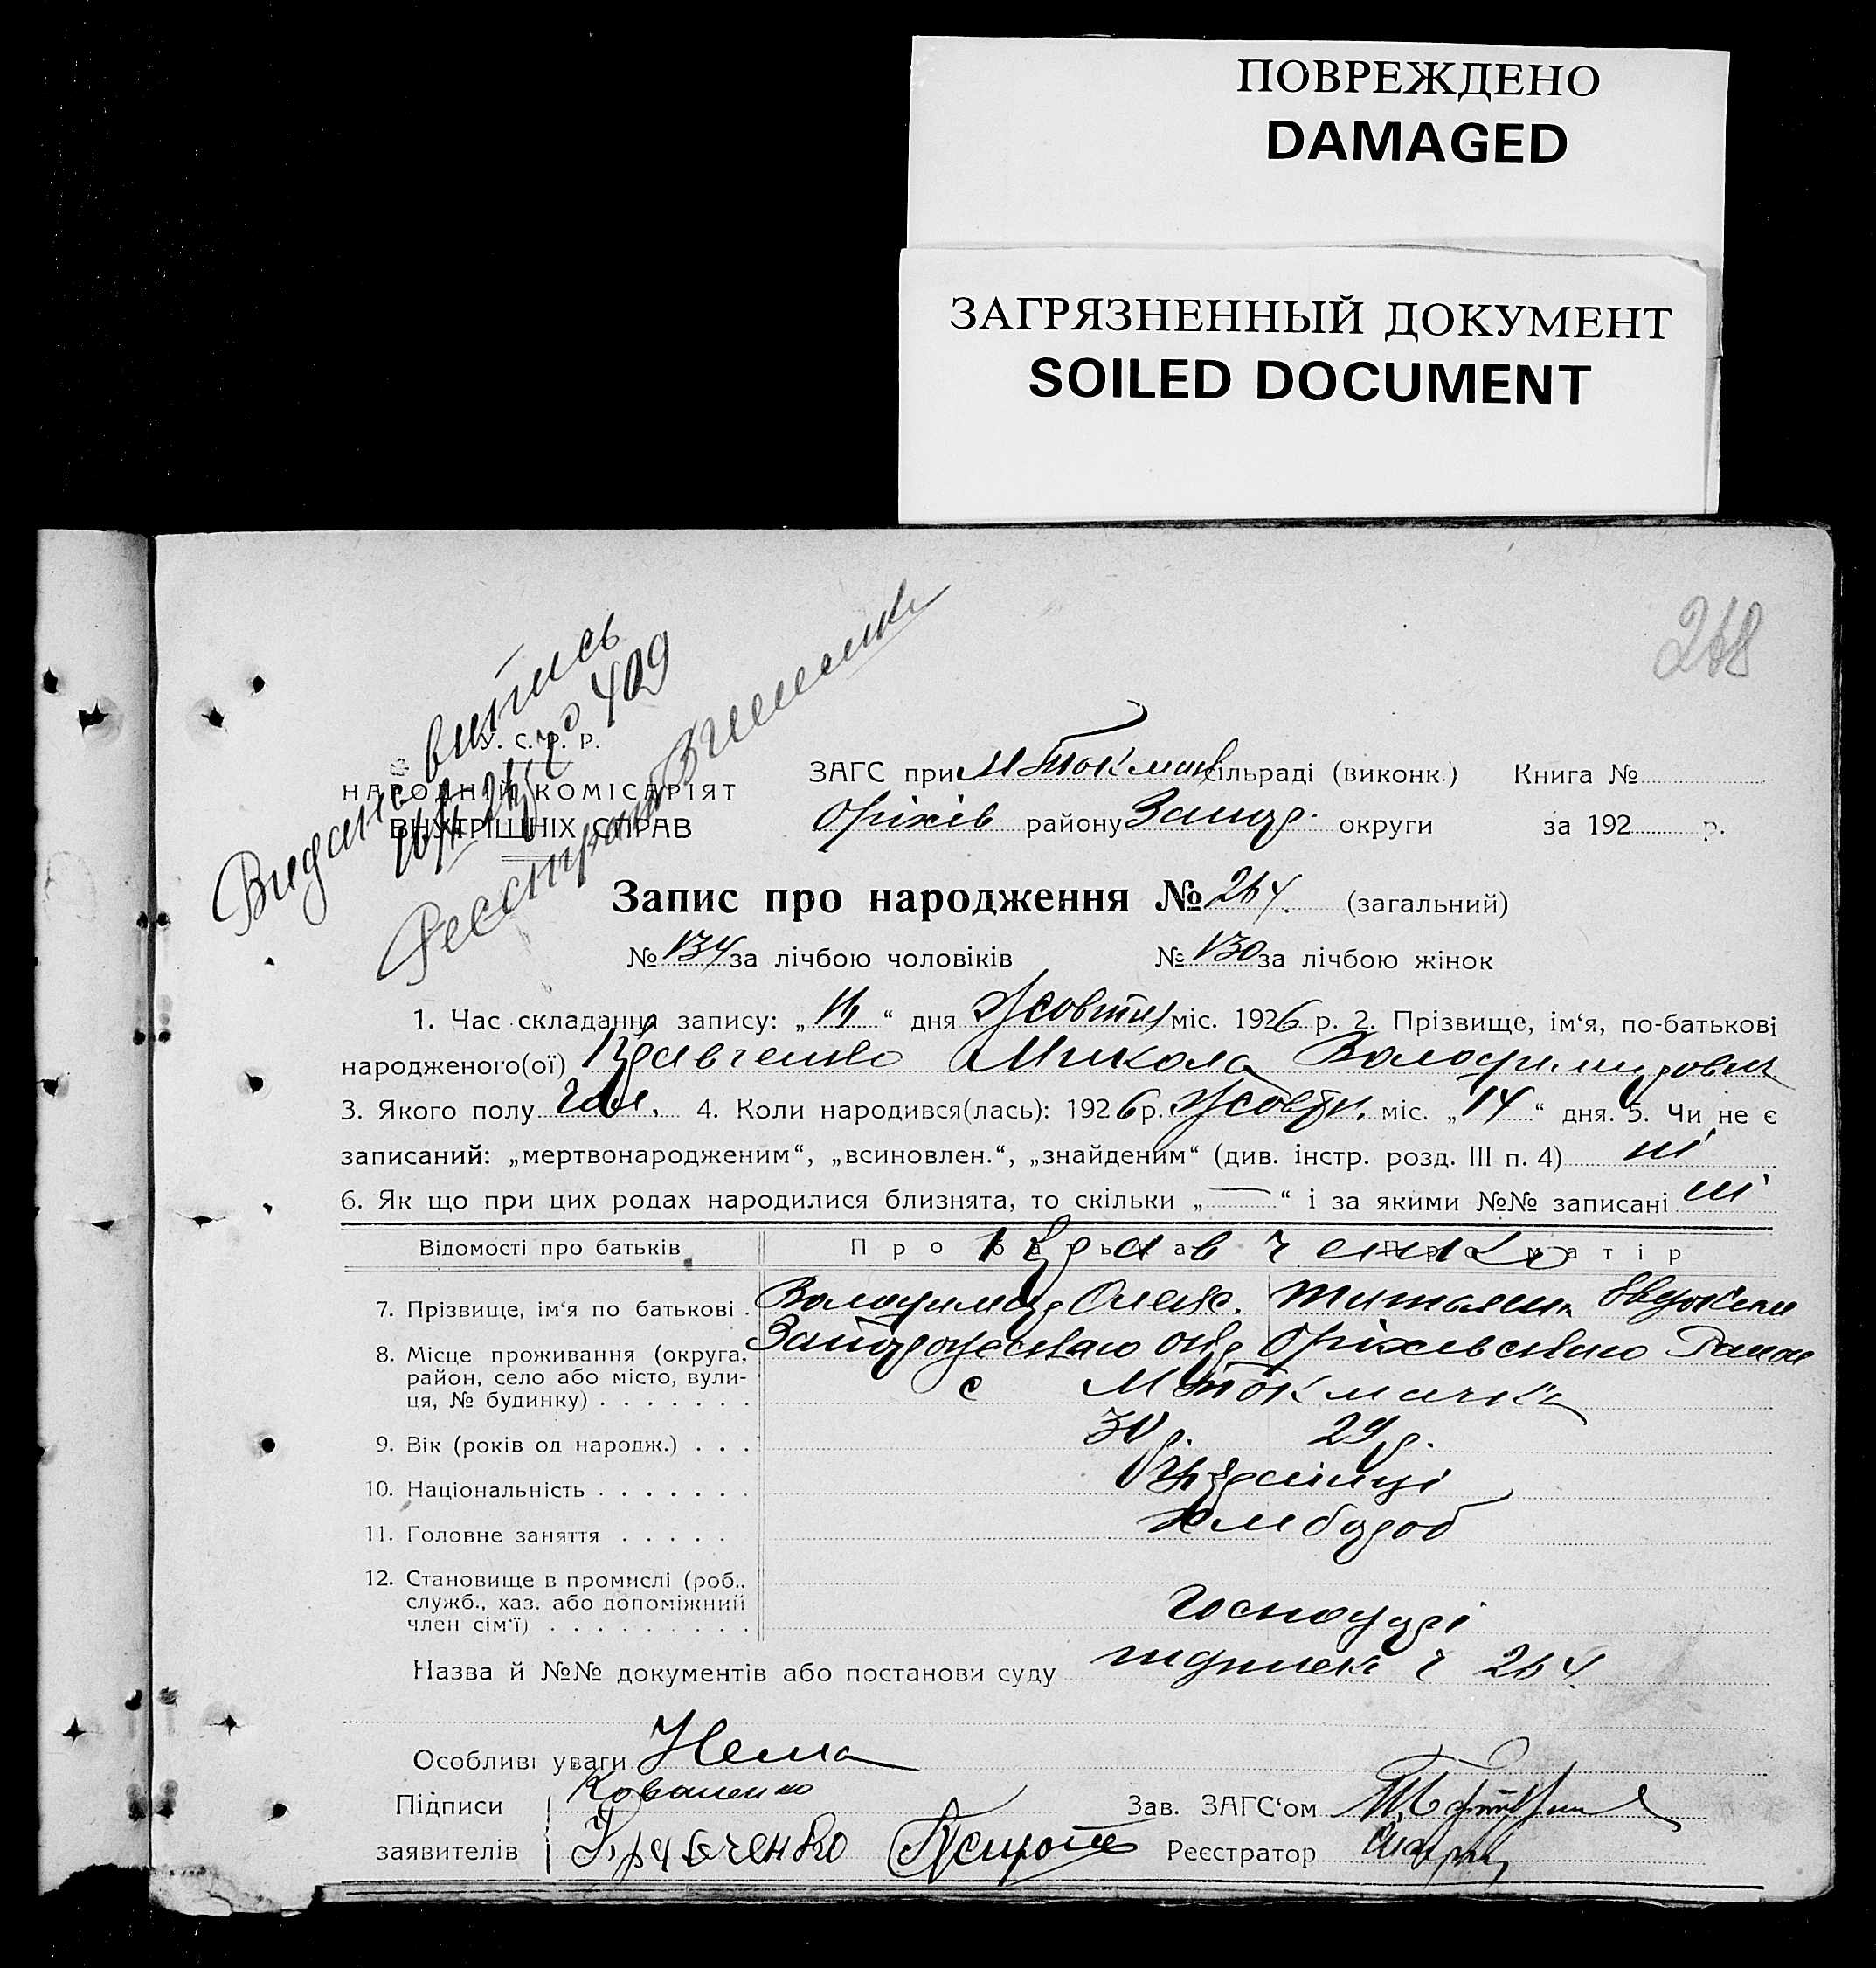 ПОВРЕЖДЕНО
DAMAGED
ЗАГРЯЗНЕННЫЙ ДОКУМЕНТ
SOILED DOCUMENT
Видано витись
409
Реєстратор
У. С. Р. Р.
НАРОДНІЙ КОМІСАРІЯТ
ВНУТРІШНІХ СПРАВ
ЗАГС при М Токмач сільраді (виконк.) Книга №
Оріхів району Запор. округи за 192 р.
Запис про народження № 264. (загальний)
№ 134 за лічбою чоловіків № 130 за лічбою жінок
1. Час складання запису: „ “ дня Жовтня міс. 1926 р. 2. Прізвище, ім‘я, по-батькові
народженого(ої) Кравченко Микола Володимирович
3. Якого полу чол. 4. Коли народився(лась): 1926 р. Жовтн. міс. „14“ дня. 5. Чи не є
записаний: „мертвонародженим“, „всиновлен.“, „знайденим“ (див. інстр. розд. III п. 4) ні
6. Як що при цих родах народилися близнята, то скільки „—“ і за якими №№ записані ні
Відомості про батьків Про батька Про матір
Кравченко
7. Прізвище, ім‘я по батькові Володимир Олекс. Титьяна
8. Місце проживання (округа, Запорожського окр Оріхівського
район, село або місто, вули- с М Токмачка
ця, № будинку)
9. Вік (років од народж.) 30 р. 29 р.
10. Національність Українці
11. Головне заняття хлібороб
12. Становище в промислі (роб.,
служб., хаз. або допоміжний Господарі
член сім‘ї)
Назва й №№ документів або постанови суду ч 264
Особливі уваги Нема
Підписи Коваленко Зав. ЗАГС‘ом
заявителів Кравченко Реєстратор